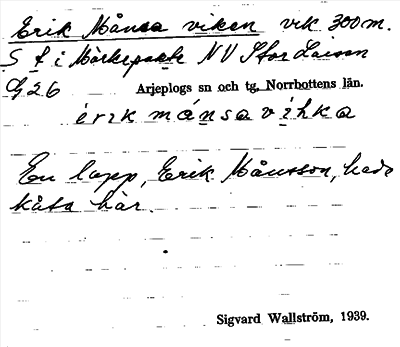 Erik Månsa viken vik 300 m.
S f i Mörkepakte NV Stor Laisan
G 26 Arjeplogs sn och tg, Norrbottens län.
érik mánsa vihka
En lapp, Erik Månsson, hade
kåta här.
Sigvard Wallström, 1939.